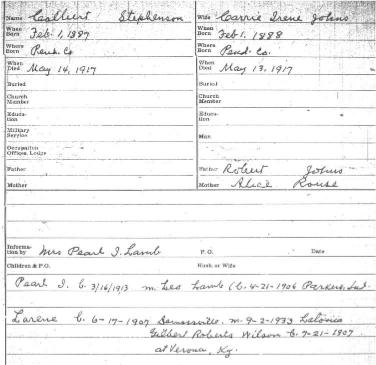 Name Culbert Stephenson Wife Carrie Irene Johns
When Born Feb. 1, 1887 When Born Feb 1. 1888
Where Born Pend. Co. Where Born Pend. Co.
When Died May 14, 1917 When Died May 13. 1917
Buried Buried
Church Member Church Member
Education Education
Military Service
Occupation Offices, Lodge
Father Father Robert Johns
Mother Mother Alice Rouse
Information by Mrs Pearl I. Lamb P.O. Date
Children & P.O. Husb. or Wife
Pearl I. b. 3/16/1913 m. Leo Lamb (b. 4-21-1906 Parkers, Ind.
Larene b. 6-17-1907 Demossville. m. 9-2-1933 Latonia
Gilbert Roberts Wilson b. 7-21-1907
at Verona, Ky.